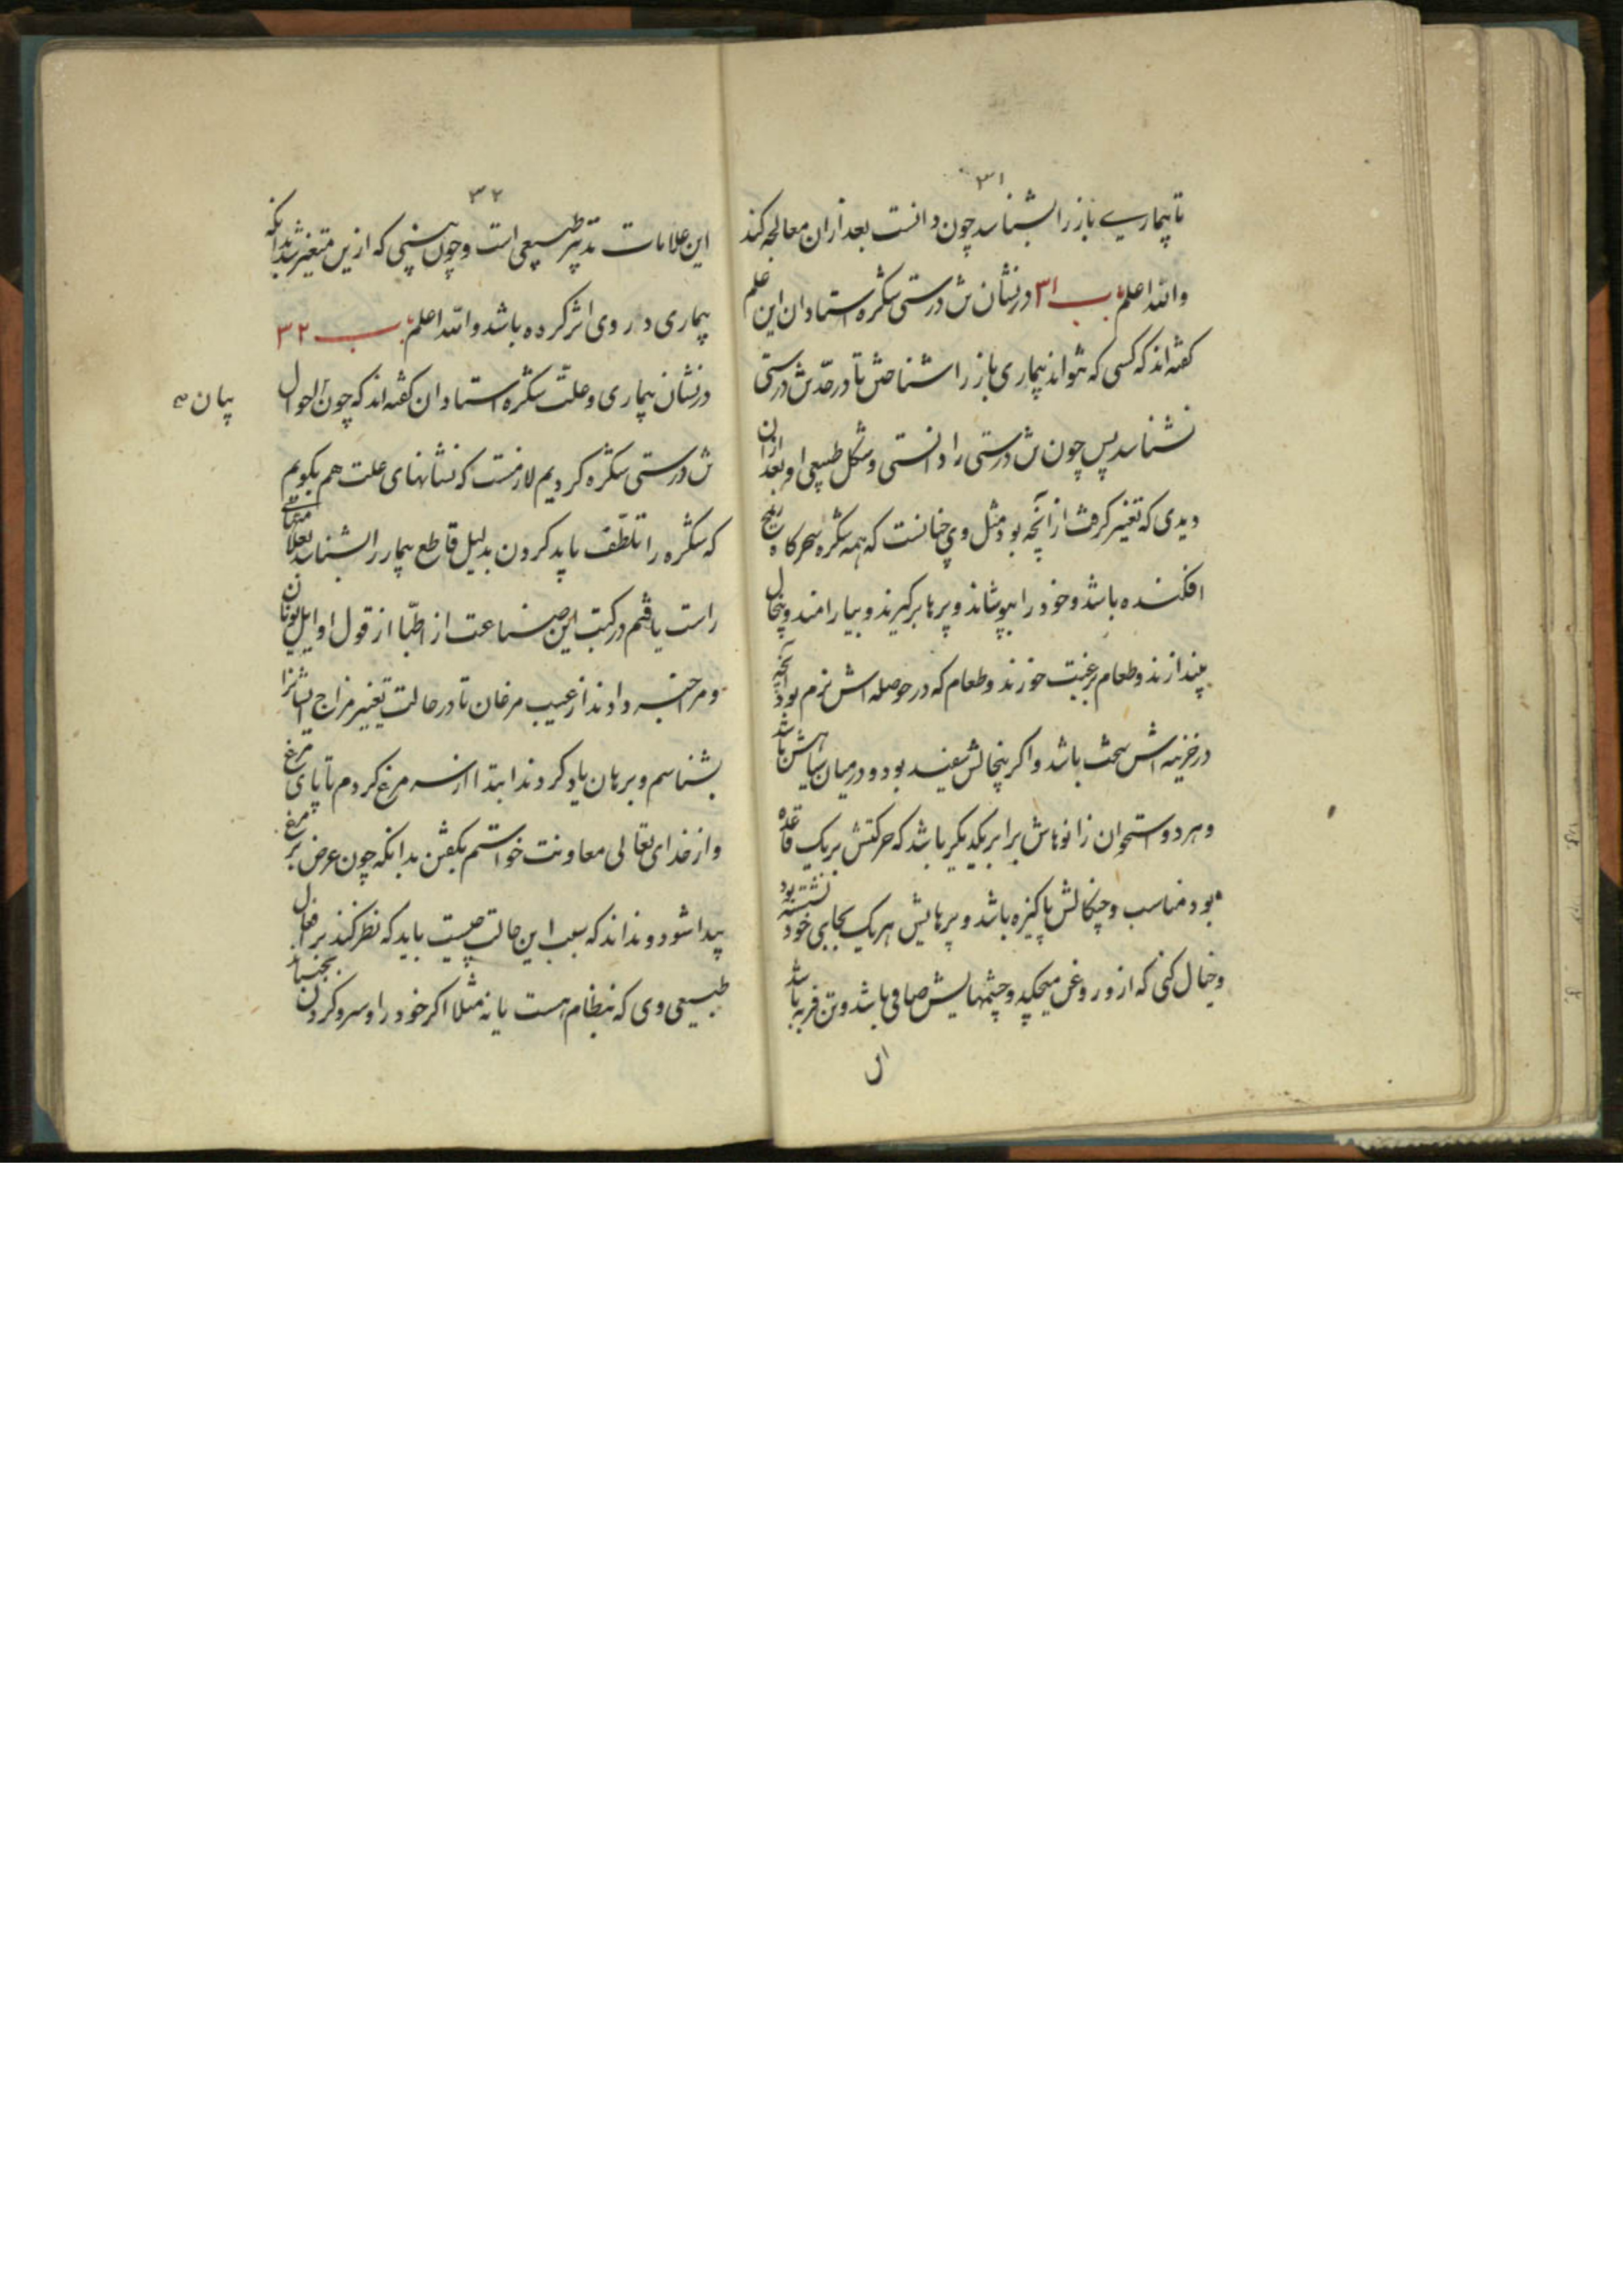 ۳۱
تا بیماری باز را بشناسد چون دانست بعد از ان معالجه کند
والله اعلم باب ۳۱ در نشان تن درستی شکره استادان این علم
کفته اند که کسی که نتواند بیماری باز را شناختن تا در حد تن درستی
نشناسد پس چون تن درستی را دانستی و شکل طبیعی او بعد ازان
دیدی که تغییر کرفت از آنچه بود مثل وی چنانست که همه شکره سحرکاه ریخ
افکنده باشد و خود را بپوشاند و پرها برکیرند و بیارامند و پیخال
بیندازند و طعام برغبت خورند و طعام که در حوصله اش نرم بود آنچه
در خزینه اش سخت باشد و اکر پیخالش سفید بود و در میان سیاهش باشد
و هر دو استخوان زانوهاش برابر یکدیکر باشد که حرکتش بر یک قاعده
بود مناسب و چنکالش پاکیزه باشد و پرهایش هر یک بجای خود نشسته بود
و خیال کنی که ازو روغن میچکد و چشمهایش صافی باشد و تن فربه باشد
این
۳۲
این علامات تدبیر طبیعی است و چون بینی که ازین متغیر شد بدانکه
بیماری در وی اثر کرده باشد والله اعلم باب ۳۲
در نشان بیماری و علت شکره استادان کفته اند که چون احوال
بیان
تن درستی شکره کردیم لازمست که نشانهای علت هم بکویم
که شکره را تلطف باید کردن بدلیل قاطع بیمار را بشناسد بعلاماتی
راست یافتم در کتب این صناعت از اطبا از قول اوایل یونان
و مرا خبر دادند از عیب مرغان تا در حالت تغییر مزاج ایشانرا
بشناسم و برهان یاد کردند ابتدا از سر مرغ کردم تا پای مرغ
و از خدای تعالی معاونت خواستم بکفتن بدانکه چون عرض بر مرغ
پیدا شود و نداند که سبب این حالت چیست باید که نظر کند بر افعال
طبیعی وی که بنظام هست یا نه مثلا اکر خود را و سر و کردن بجنباند